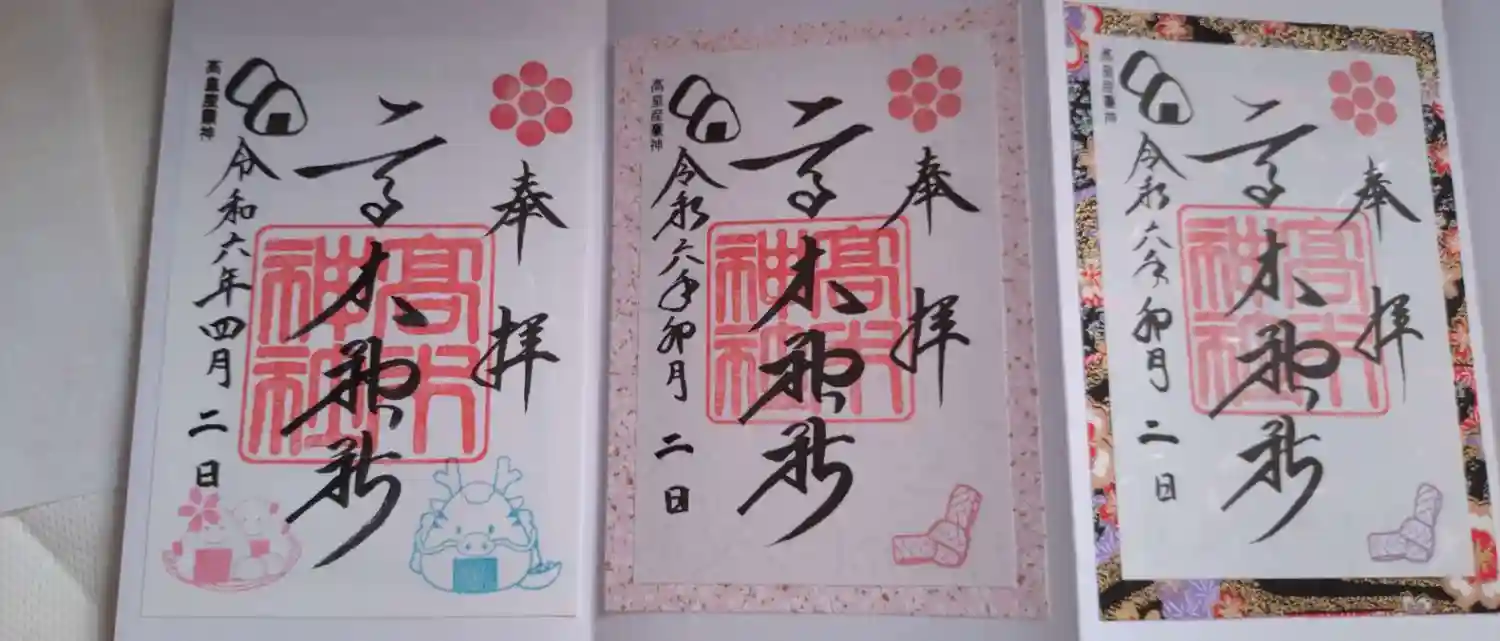 奉拝
高木神社
髙木神社
令和六年四月二日
高皇産靈神
奉拝
高木神社
髙木神社
令和六年卯月二日
高皇産靈神
奉拝
高木神社
髙木神社
令和六年卯月二日
高皇産靈神